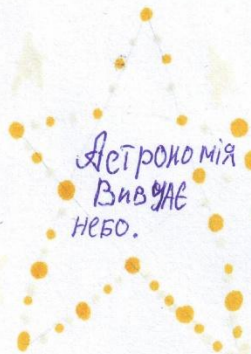 Астрономія
Вивчає
небо.